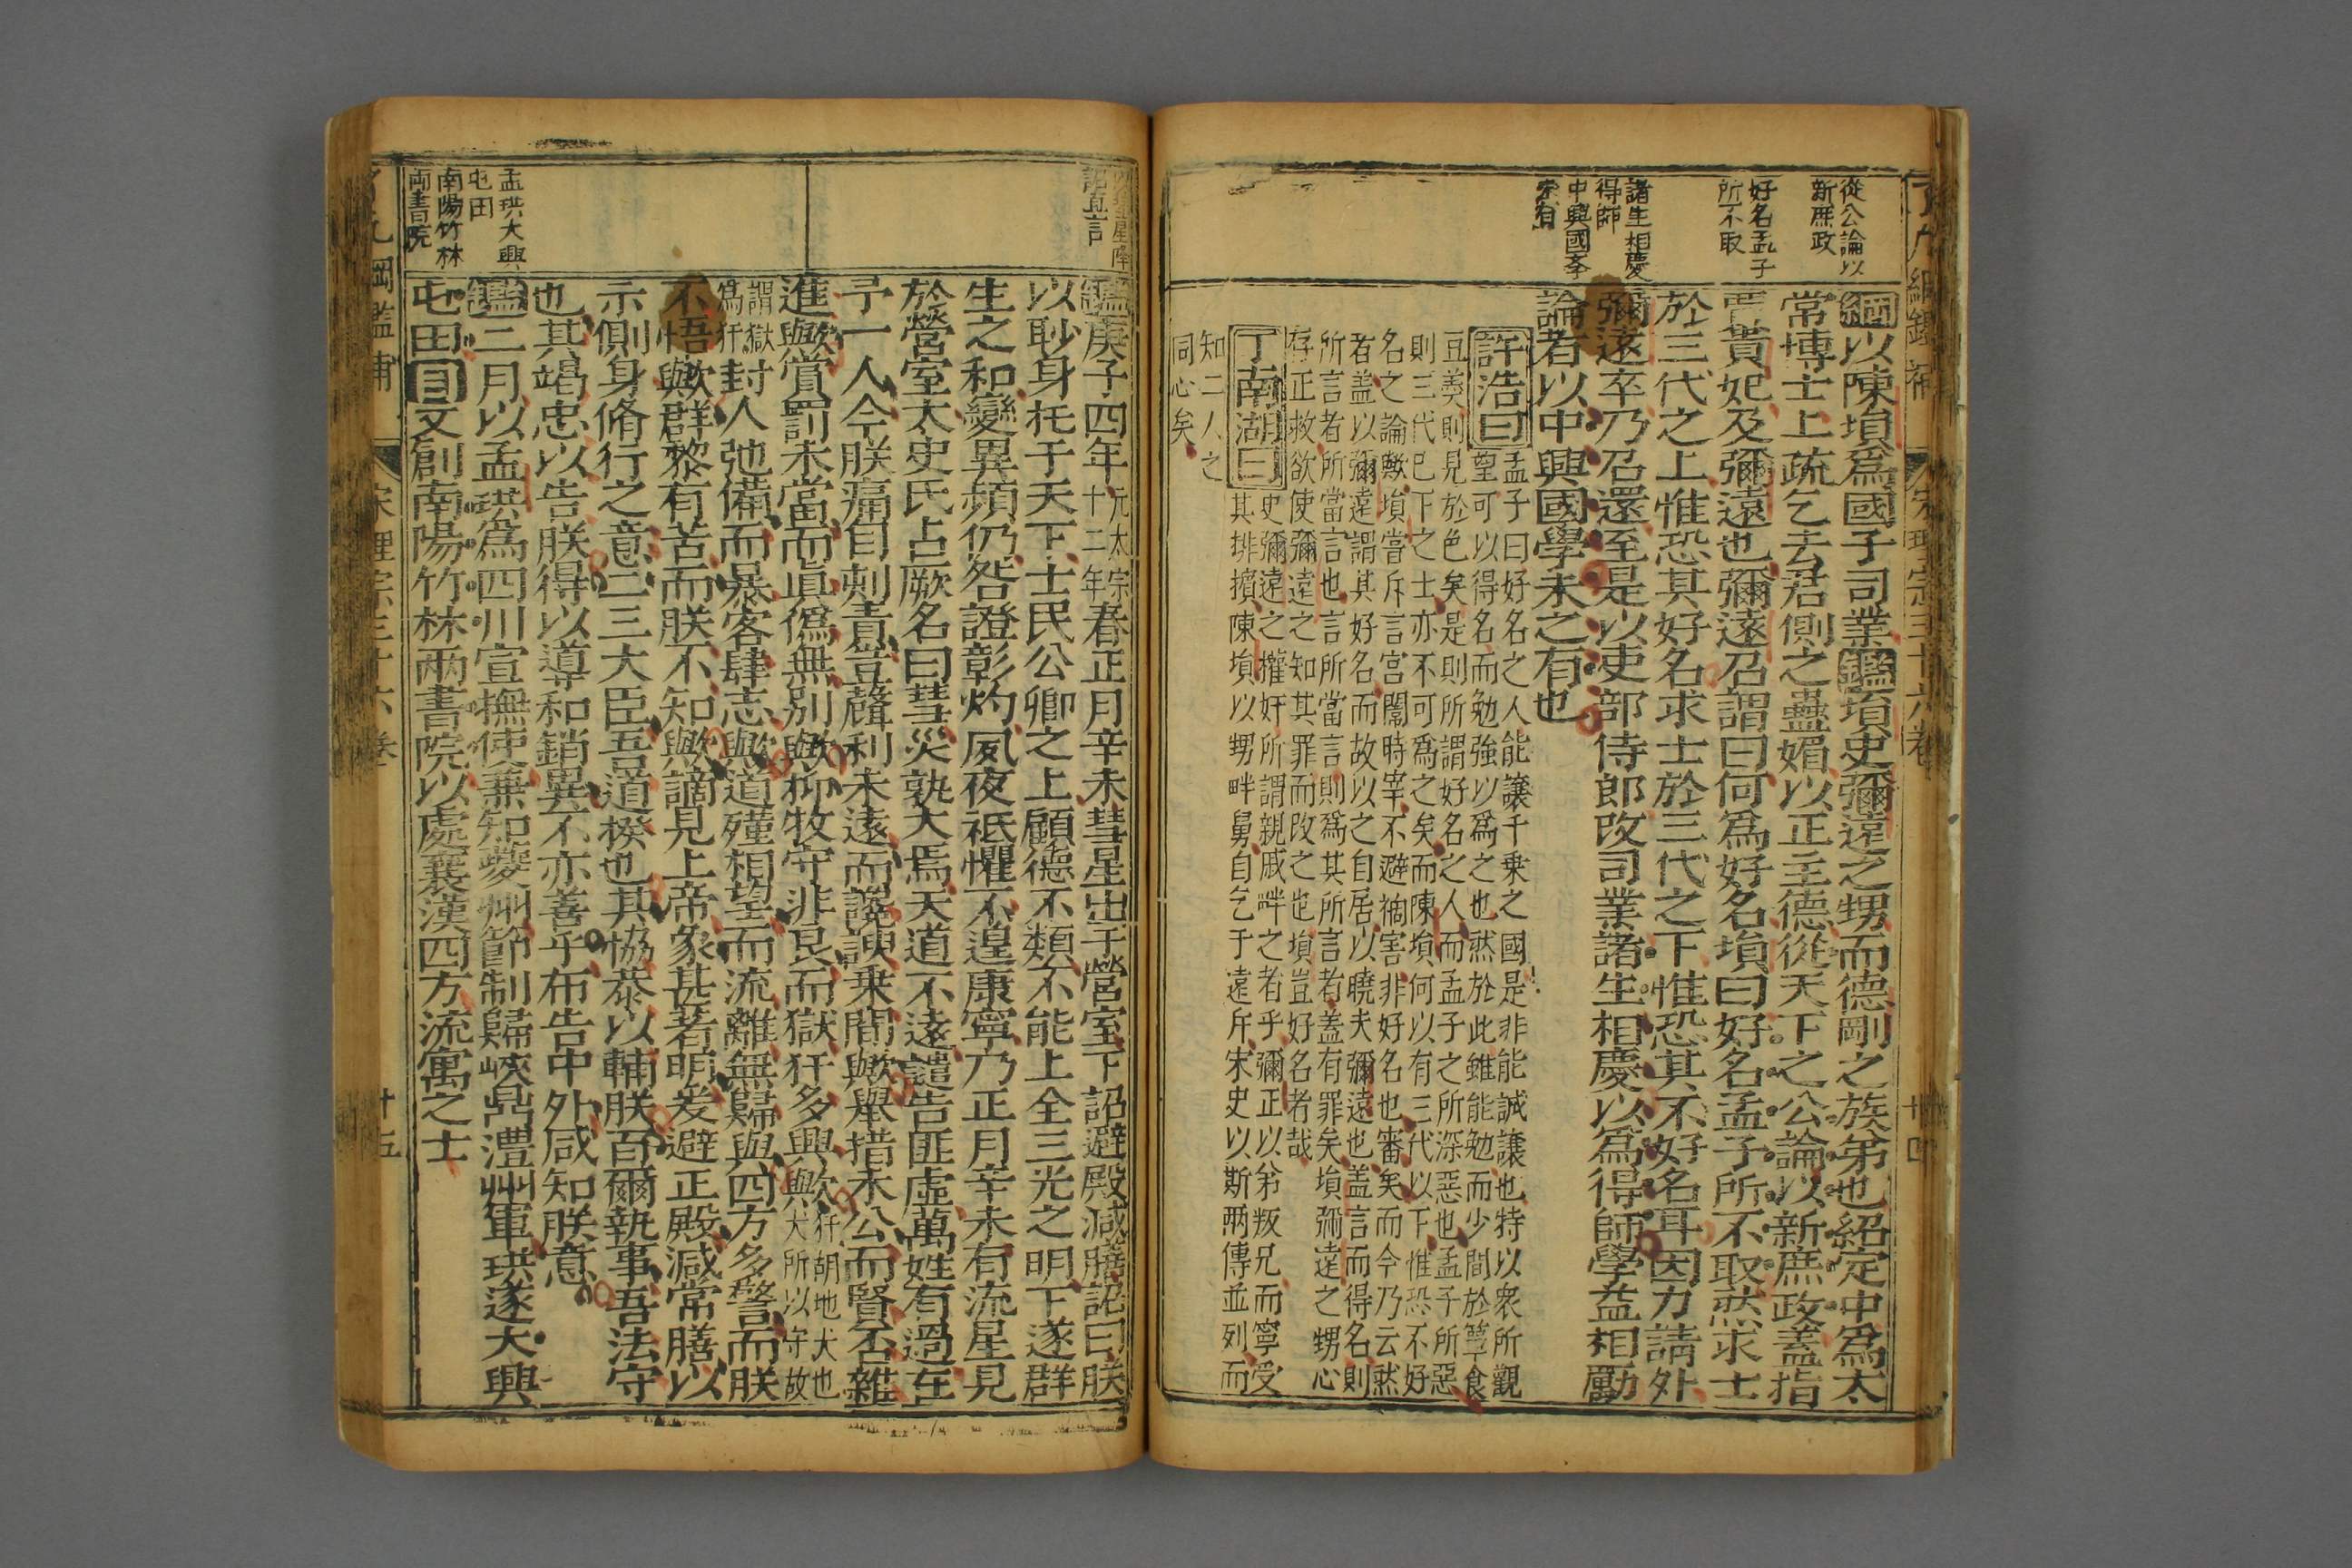 從公論以
新庶政
好名孟子
所不取
諸生相慶
得師
中興國李
未有
綱以陳塤爲國子司業鑑塤史彌遠之甥而德剛之族弟也紹定中爲太
常博士上疏乞去君側之蠱媚以正主德從天下之公論以新庶政蓋指
賈貴妃及彌遠也彌遠召謂曰何爲好名塤曰好名孟子所不取然求士
於三代之上惟恐其好名求士於三代之下惟恐其不好名耳因力請外
彌遠卒乃召還至是以吏部侍郎改司業諸生相慶以爲得師學益相勵
論者以中興國學未之有也
許浩曰
孟子曰好名之人能讓千乘之國是非能誠讓也特以衆所觀
望可以得名而勉強以爲之也然於此雖能勉而少間於簞食
豆羹則見於色矣是則所謂好名之人而孟子之所深惡也孟子所惡
則三代已下之士亦不可爲之矣而陳塤何以有三代以下惟恐不好
名之論歟塤當斥言宮闈時宰不避禍害非好名也審矣而今乃云然
者蓋以彌遠謂其好名而故以之自居以曉夫彌遠也蓋言而得名則
所言者所當言也言所當言則爲其所言者蓋有罪矣塤彌遠之甥心
存正救欲使彌遠之知其罪而改之也塤豈好名者哉
丁南湖曰
史彌遠之權奸所謂親戚畔之者乎彌正以弟叛兄而寧受
其排擯陳塤以甥畔舅自乞于遠斥宋史以斯兩傳並列而
知二人之
同心矣
宋理宗三十六卷
廿四
詔直言
孟珙大興
屯田
南陽竹林
兩書院
鑑庚子四年
元太宗
十二年
春正月辛未彗星出于營室下詔避殿減膳詔曰朕
以眇身托于天下士民公卿之上顧德不類不能上全三光之明下遂群
生之和變異頻仍咎證彰灼夙夜祗懼不遑康寧乃正月辛未有流星見
於營室太史氏占厥名曰彗災孰大焉天道不遠譴告匪虛萬姓有過在
予一人今朕痛自刻責豈聲利未遠而讒諛乗間歟舉措未公而賢否雜
進歟賞罰未當而眞僞無別歟抑牧守非良而獄犴多興歟
犴胡地犬也
犬所以守故
謂獄
爲犴
封人弛備而暴客肆志歟道殣相望而流離無歸與四方多警而朕
不悟歟群黎有苦而朕不知歟謫見上帝象甚著明爰避正殿減常膳以
示側身脩行之意二三大臣吾道揆也其協恭以輔朕百爾執事吾法守
也其竭忠以告朕得以導和銷異不亦善乎布告中外咸知朕意
鑑二月以孟珙爲四川宣撫使兼知夔州節制歸峽鼎澧州軍珙遂大興
屯田目又創南陽竹林兩書院以處襄漢四方流寓之士
宋理宗三十六卷
十五